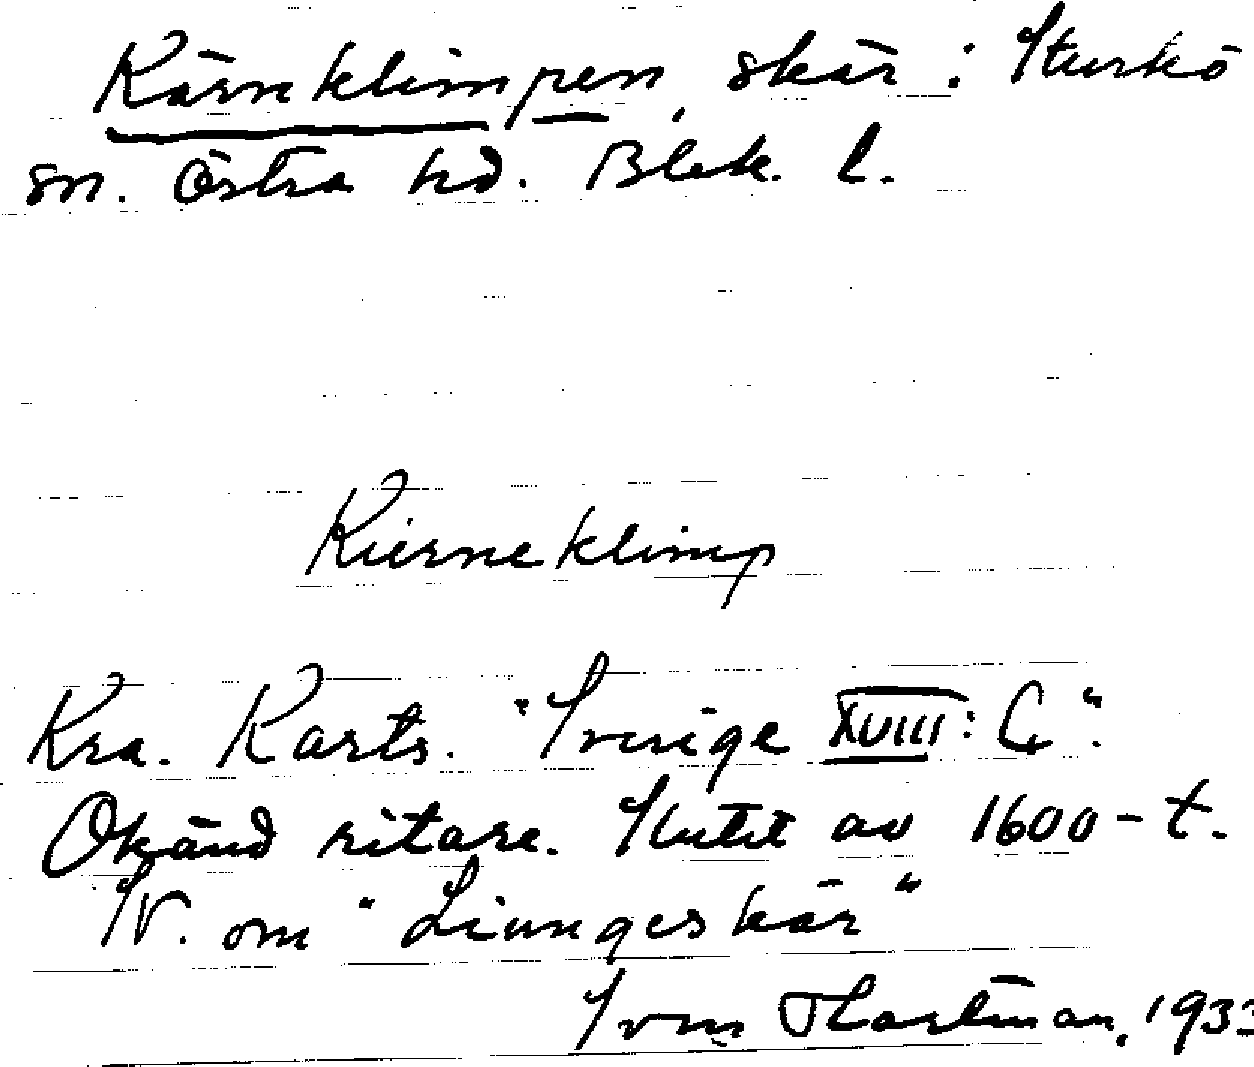 Kärneklimpen, skär i Sturkö
sn. Östra hd. Blek. l.
Kierneklimp
Kra. Karts. "Sverige XVIII: C".
Okänd ritare. Slutet av 1600-t.
SV. om "Liungeskär"
Sven Hartman, 1933